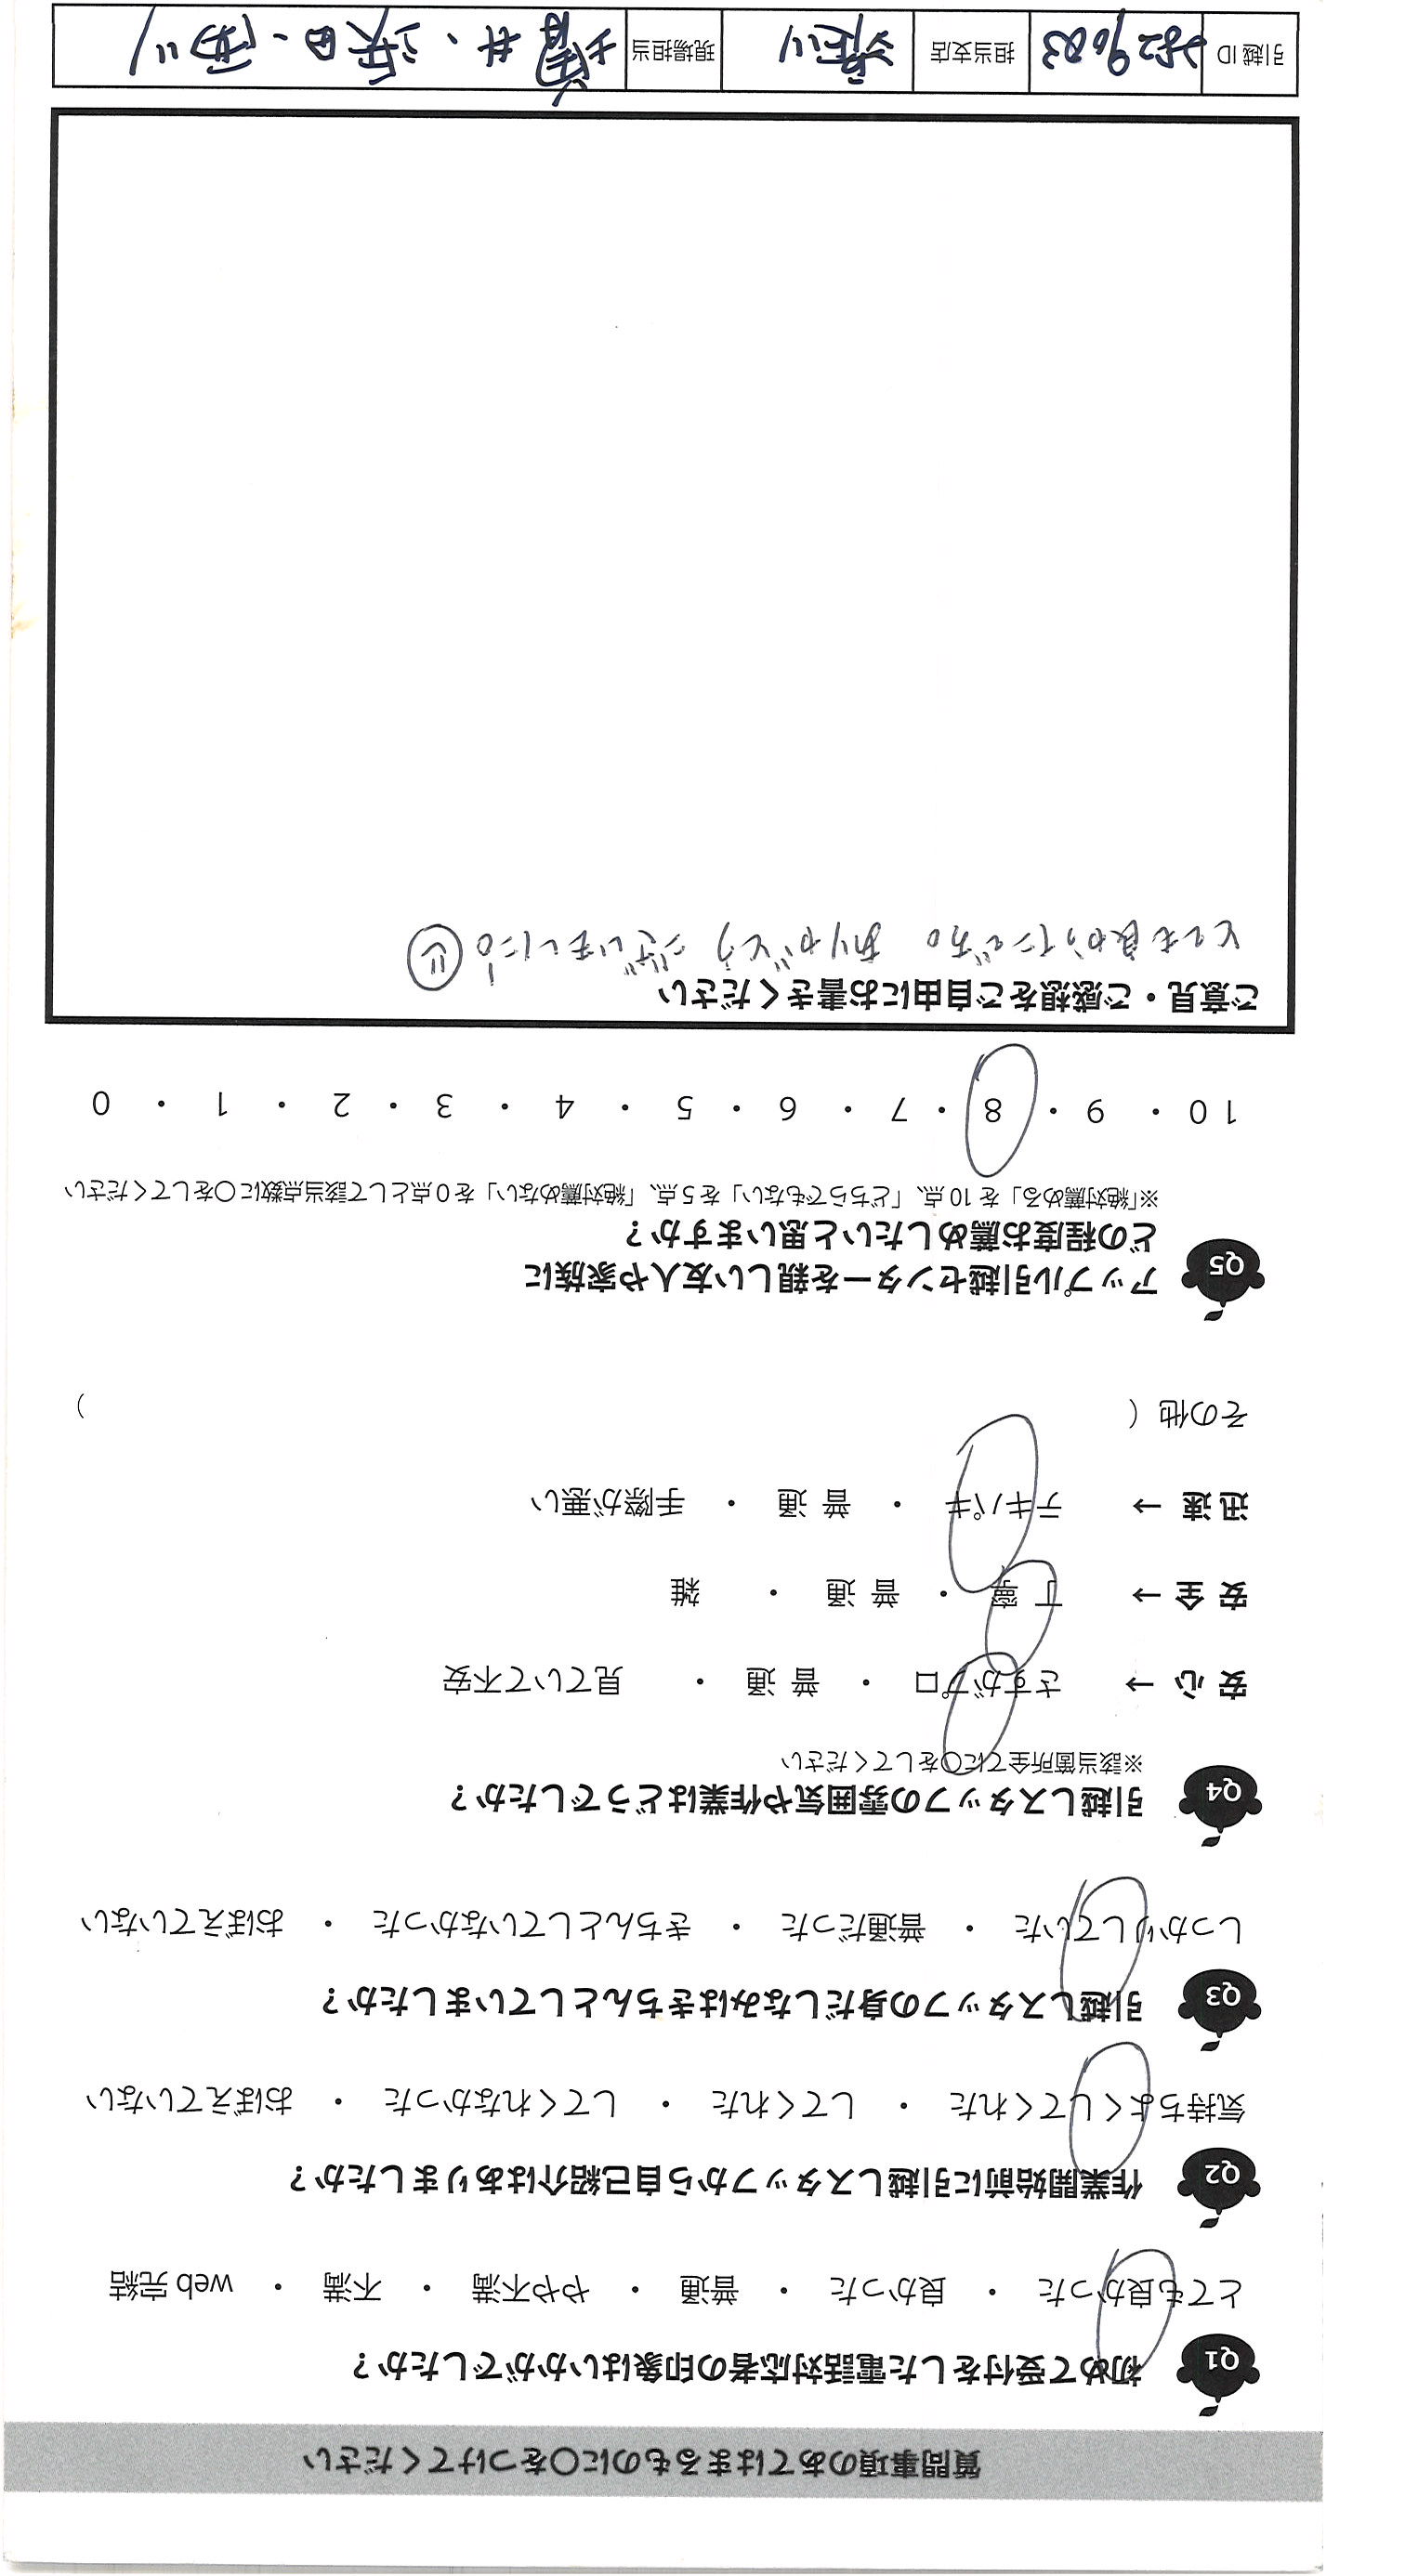 質問事項のあてはまるものに〇をつけてください
Q1 初めて受付をした電話対応者の印象はいかがでしたか？
とても良かった ・ 良かった ・ 普通 ・ やや不満 ・ 不満 ・ web 完結
Q2 作業開始前に引越しスタッフから自己紹介はありましたか？
気持ちよくしてくれた ・ してくれた ・ してくれなかった ・ おぼえていない
Q3 引越しスタッフの身だしなみはきちんとしていましたか？
しっかりしていた ・ 普通だった ・ きちんとしていなかった ・ おぼえていない
Q4 引越しスタッフの雰囲気や作業はどうでしたか？
※該当箇所全てに〇をしてください
安 心 → さすがプロ ・ 普 通 ・ 見ていて不安
安 全 → 丁 寧 ・ 普 通 ・ 雑
迅 速 → テキパキ ・ 普 通 ・ 手際が悪い
その他（ ）
Q5 アップル引越センターを親しい友人や家族に
どの程度お薦めしたいと思いますか？
※「絶対薦める」を 10 点、「どちらでもない」を 5 点、「絶対薦めない」を 0 点として該当点数に〇をしてください
10 ・ 9 ・ 8 ・ 7 ・ 6 ・ 5 ・ 4 ・ 3 ・ 2 ・ 1 ・ 0
ご意見・ご感想をご自由にお書きください
とても良かったです。ありがとうございました！
引越 ID 2829023 担当支店 現場担当